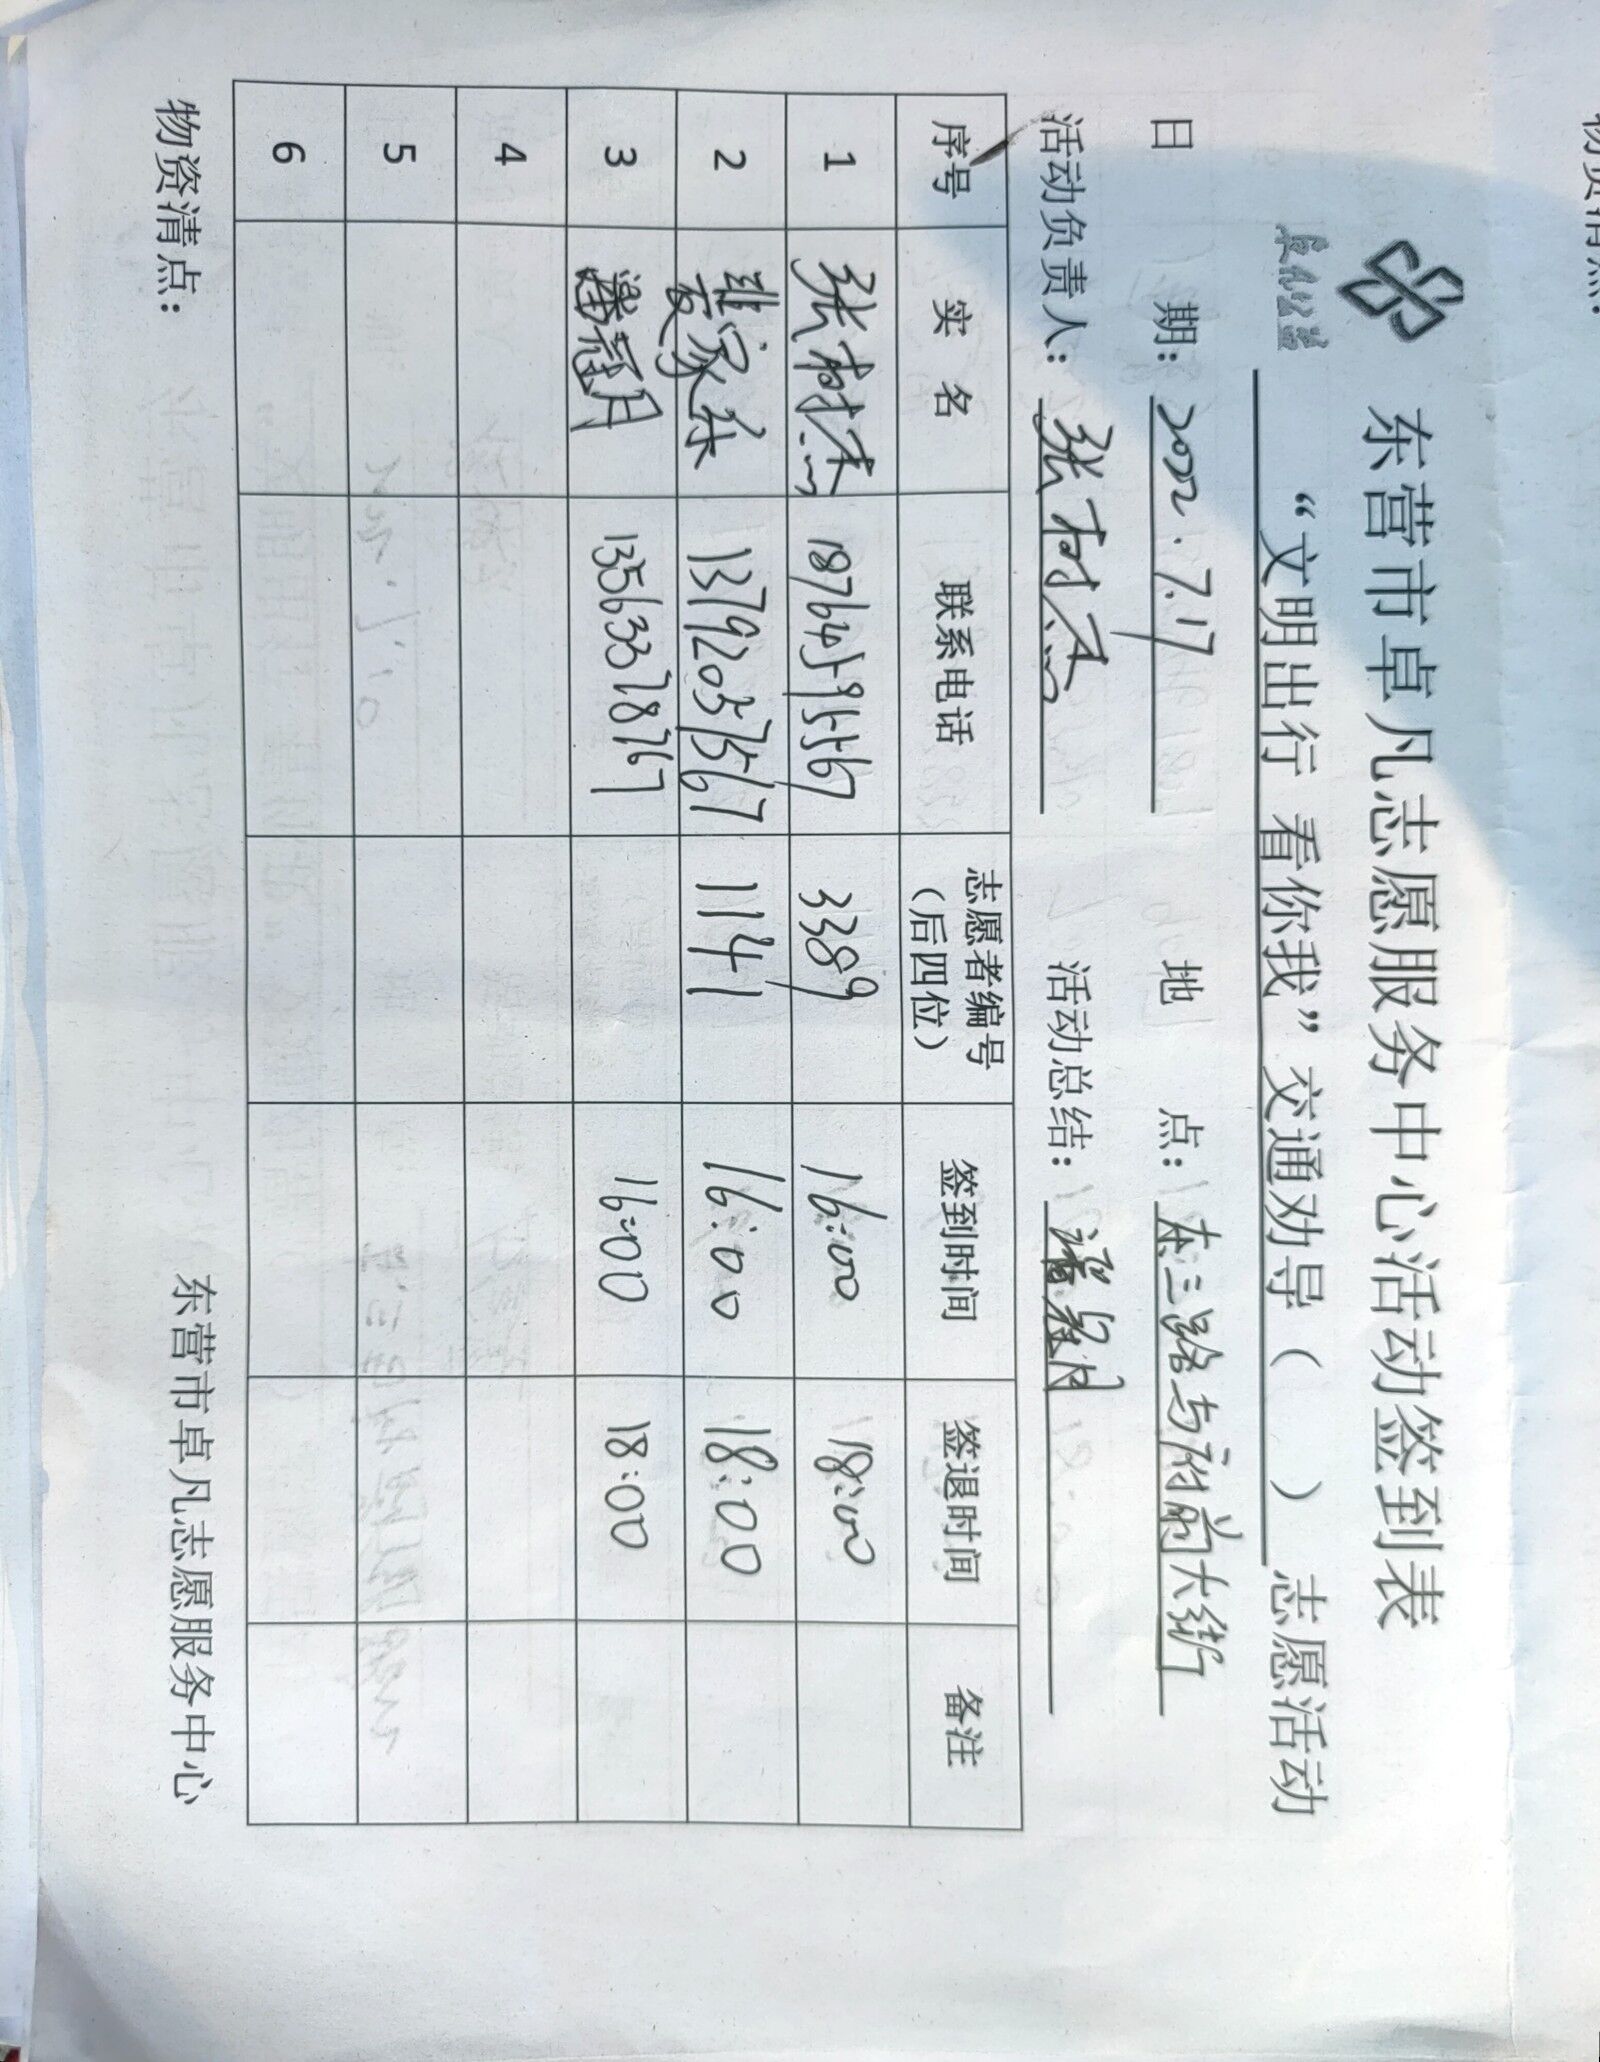 东营市卓凡志愿服务中心活动签到表
“文明出行 看你我”交通劝导（ ）志愿活动
日 期：2022.7.17 地 点：东三路与府前大街
活动负责人：张树杰 活动总结：潘冠月
序号 实 名 联系电话 志愿者编号（后四位） 签到时间 签退时间 备注
1 张树杰 18764595567 3389 16:00 18:00
2 13792037567 1141 16:00 18:00
3 潘冠月 13563378767 16:00 18:00
4
5
6
物资清点： 东营市卓凡志愿服务中心